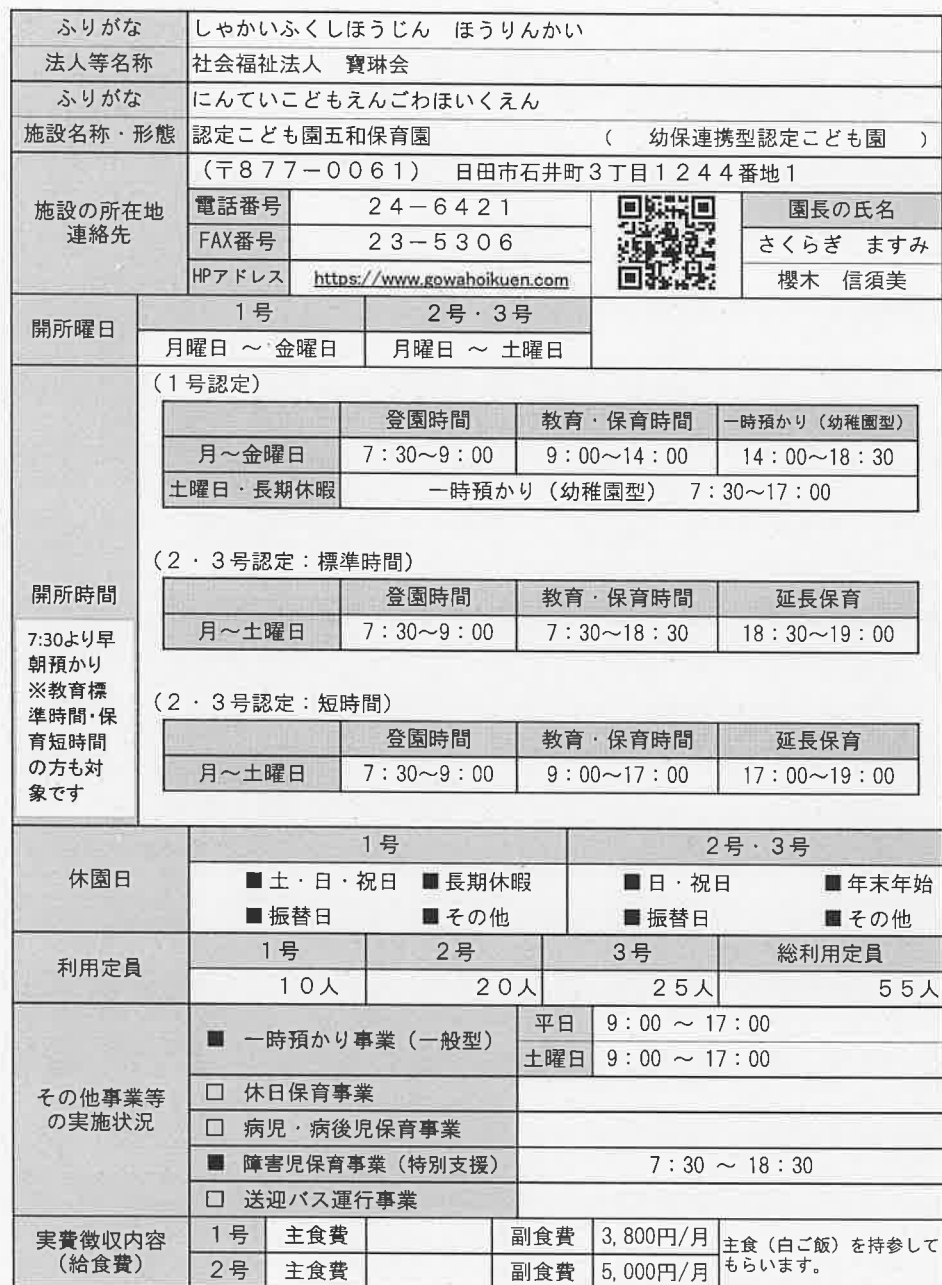 ふりがな しゃかいふくしほうじん ほうりんかい
法人等名称 社会福祉法人 寶琳会
ふりがな にんていこどもえんごわほいくえん
施設名称・形態 認定こども園五和保育園 （ 幼保連携型認定こども園 ）
施設の所在地
連絡先
（〒877－0061） 日田市石井町3丁目1244番地1
電話番号 24－6421 園長の氏名
FAX番号 23－5306 さくらぎ ますみ
HPアドレス https://www.gowahoikuen.com 櫻木 信須美
開所曜日
1号 2号・3号
月曜日 ～ 金曜日 月曜日 ～ 土曜日
開所時間
7:30より早
朝預かり
※教育標
準時間・保
育短時間
の方も対
象です
（1号認定）
登園時間 教育・保育時間 一時預かり（幼稚園型）
月～金曜日 7：30～9：00 9：00～14：00 14：00～18：30
土曜日・長期休暇 一時預かり（幼稚園型） 7：30～17：00
（2・3号認定：標準時間）
登園時間 教育・保育時間 延長保育
月～土曜日 7：30～9：00 7：30～18：30 18：30～19：00
（2・3号認定：短時間）
登園時間 教育・保育時間 延長保育
月～土曜日 7：30～9：00 9：00～17：00 17：00～19：00
休園日
1号 2号・3号
■土・日・祝日 ■長期休暇 ■日・祝日 ■年末年始
■振替日 ■その他 ■振替日 ■その他
利用定員
1号 2号 3号 総利用定員
10人 20人 25人 55人
その他事業等
の実施状況
■ 一時預かり事業（一般型） 平日 9：00 ～ 17：00
土曜日 9：00 ～ 17：00
□ 休日保育事業
□ 病児・病後児保育事業
■ 障害児保育事業（特別支援） 7：30 ～ 18：30
□ 送迎バス運行事業
実費徴収内容
（給食費）
1号 主食費 副食費 3,800円/月
2号 主食費 副食費 5,000円/月
主食（白ご飯）を持参して
もらいます。